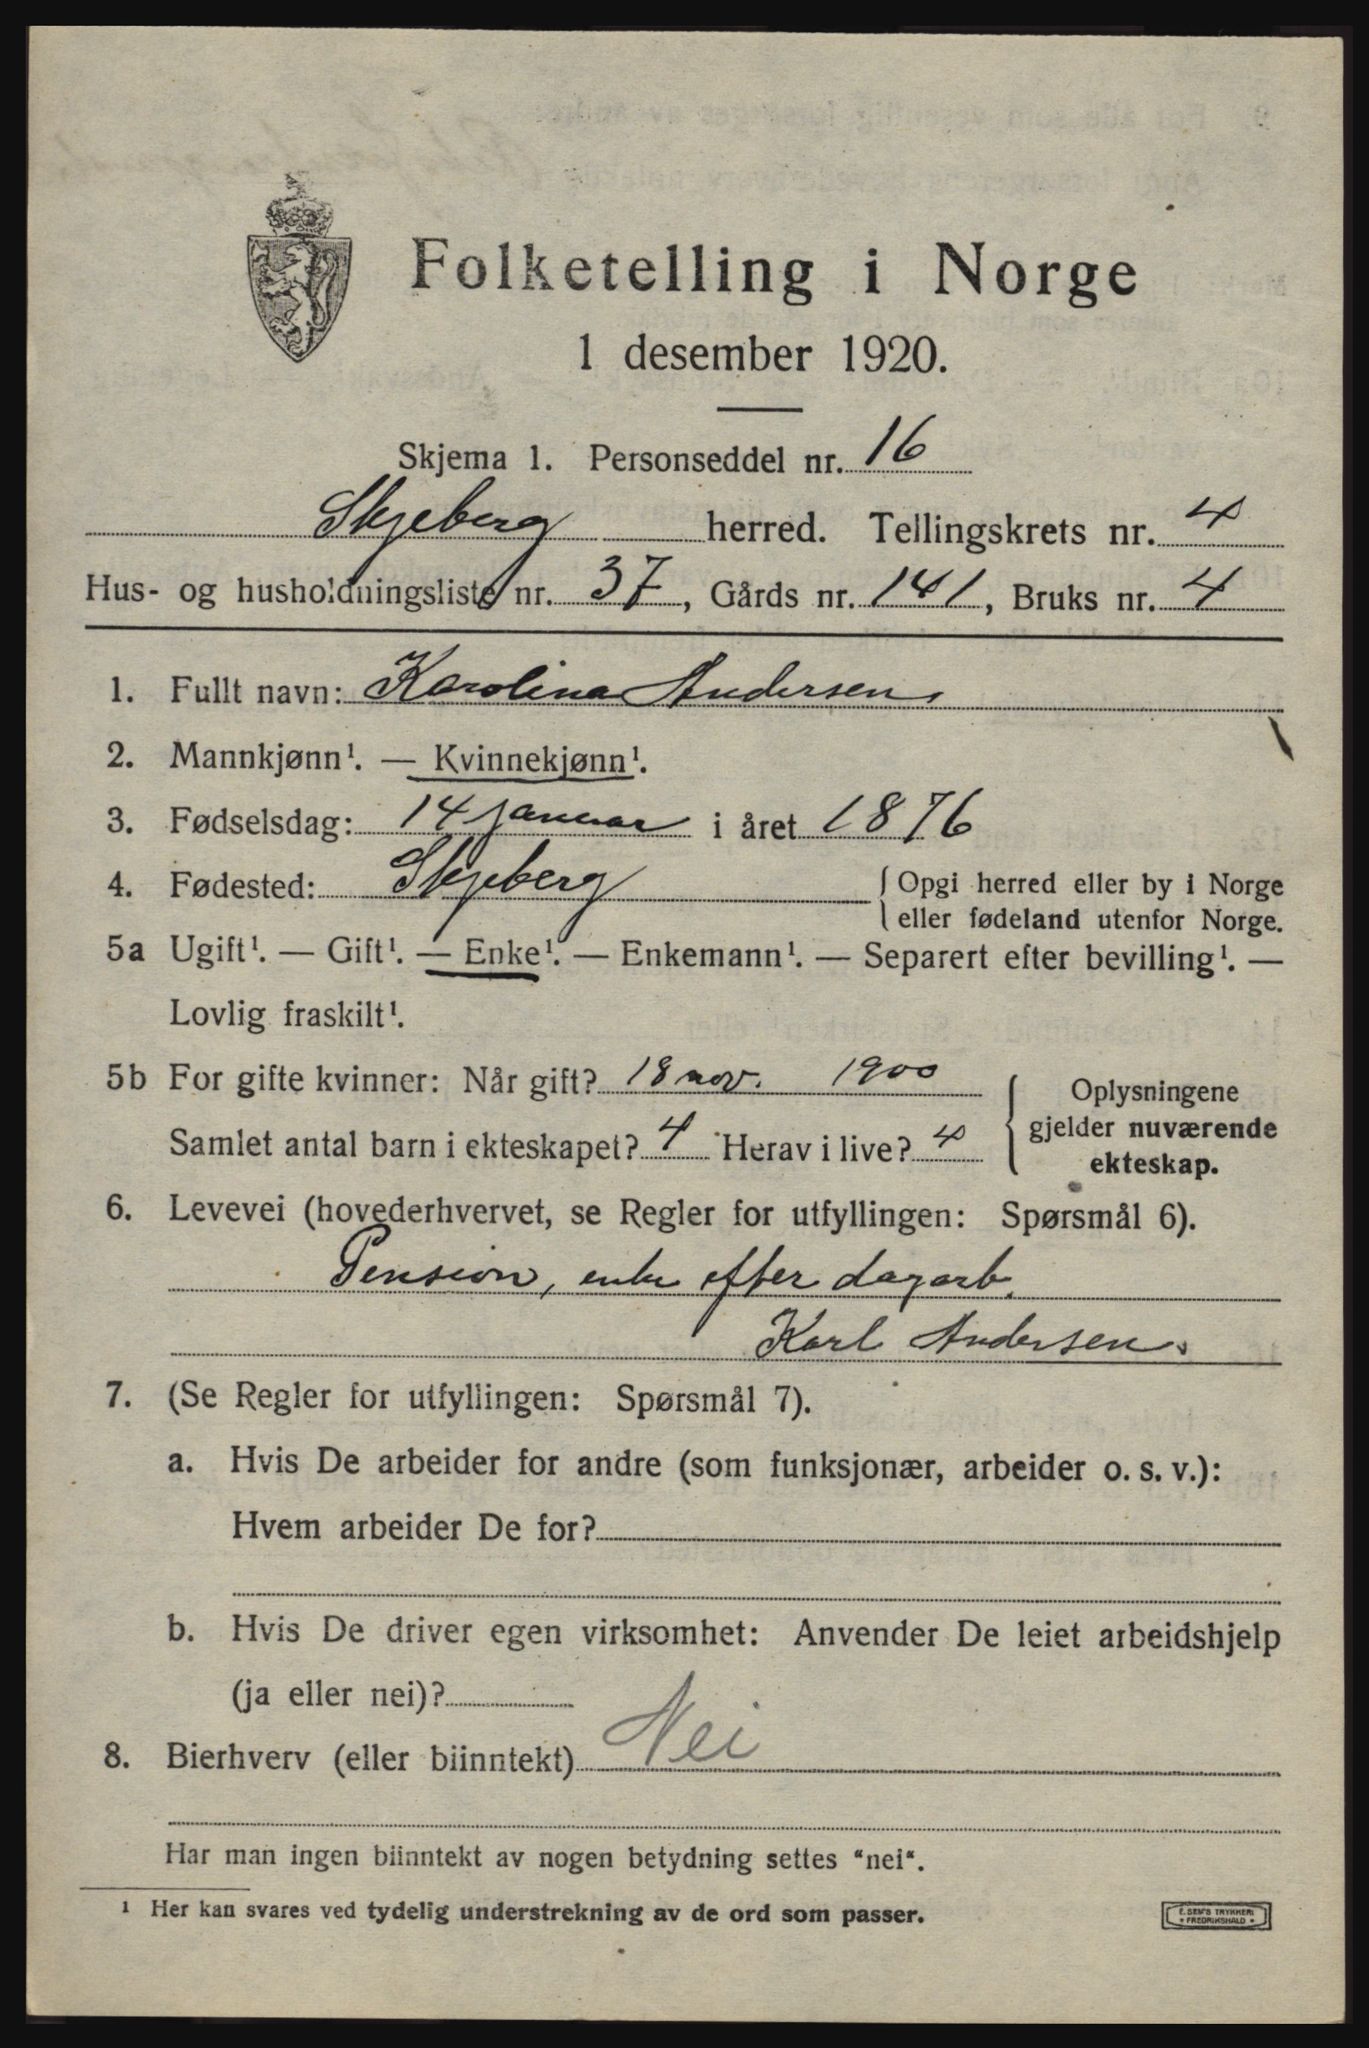 Folketelling i Norge
1 desember 1920.
Skjema 1. Personseddel nr. 16
Skjeberg herred. Tellingskrets nr. 4
Hus- og husholdningsliste nr. 37, Gårds nr. 141, Bruks nr. 4
1. Fullt navn: Karolina Andersen,
2. Mannkjønn¹. — Kvinnekjønn¹.
3. Fødselsdag: 14 januar i året 1876
4. Fødested: Skjeberg { Opgi herred eller by i Norge
{ eller fødeland utenfor Norge.
5a Ugift¹. — Gift¹. — Enke¹. — Enkemann¹. — Separert efter bevilling¹. —
Lovlig fraskilt¹.
5b For gifte kvinner: Når gift? 18 nov. 1900
Samlet antal barn i ekteskapet? 4 Herav i live? 4
{ Oplysningene
gjelder nuværende
ekteskap.
6. Levevei (hovederhvervet, se Regler for utfyllingen: Spørsmål 6).
Pension, enke efter dagarb.
Karl Andersen.
7. (Se Regler for utfyllingen: Spørsmål 7).
a. Hvis De arbeider for andre (som funksjonær, arbeider o. s. v.):
Hvem arbeider De for?
b. Hvis De driver egen virksomhet: Anvender De leiet arbeidshjelp
(ja eller nei)?
8. Bierhverv (eller biinntekt) Nei
Har man ingen biinntekt av nogen betydning settes "nei".
¹ Her kan svares ved tydelig understrekning av de ord som passer.
E. SEM'S TRYKKERI
• FREDRIKSHALD •